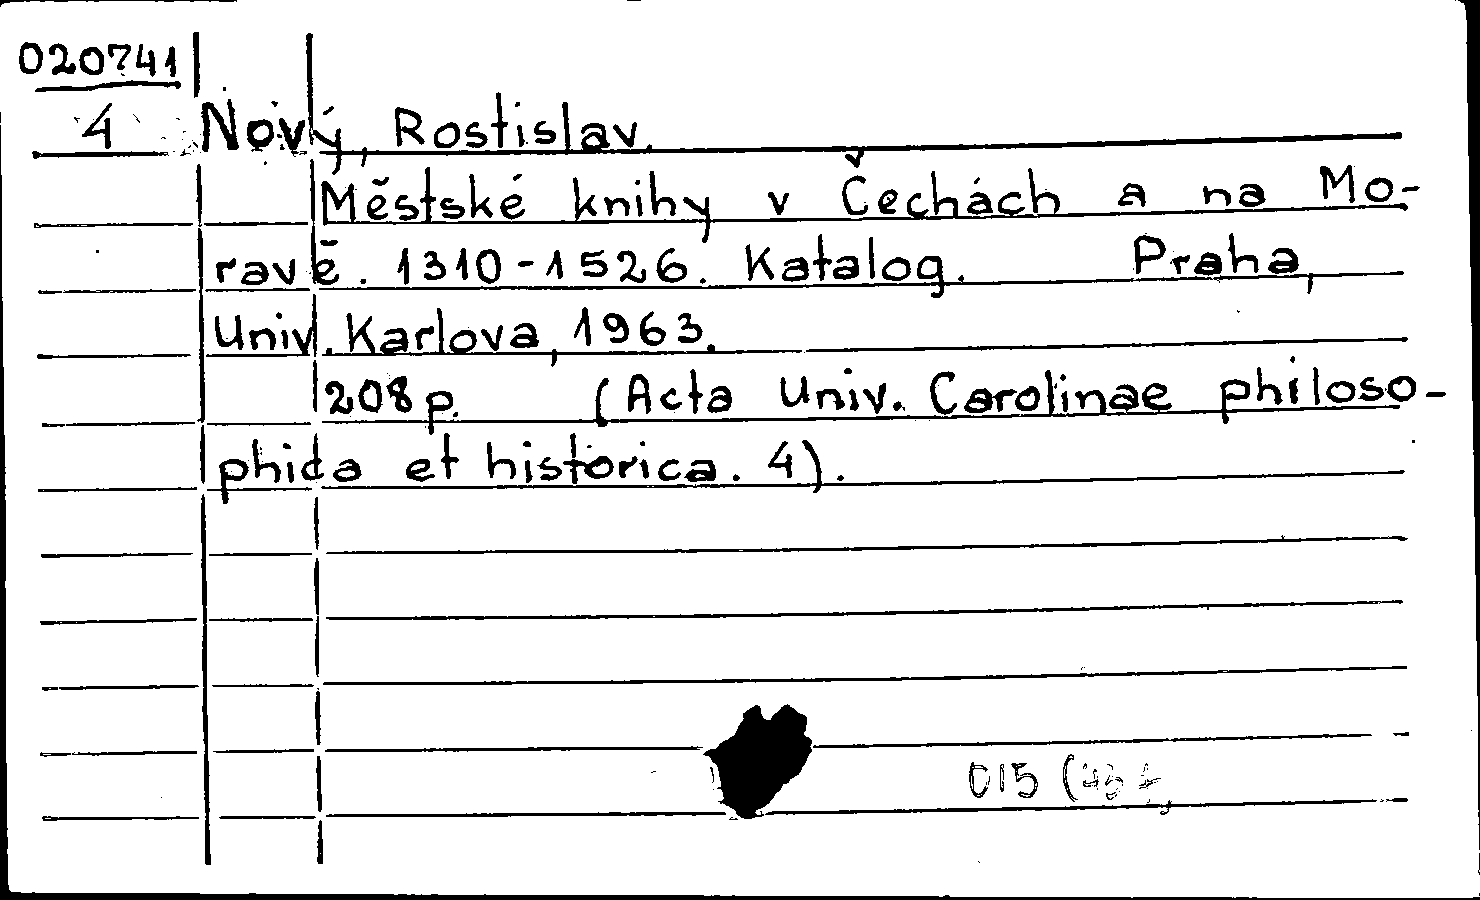 020741
4 Nový, Rostislav.
Městské knihy v Čechách a na Mo-
ravě. 1310-1526. Katalog. Praha,
Univ. Karlova, 1963.
208 p. (Acta Univ. Carolinae philoso-
phica et historica. 4).
015 (